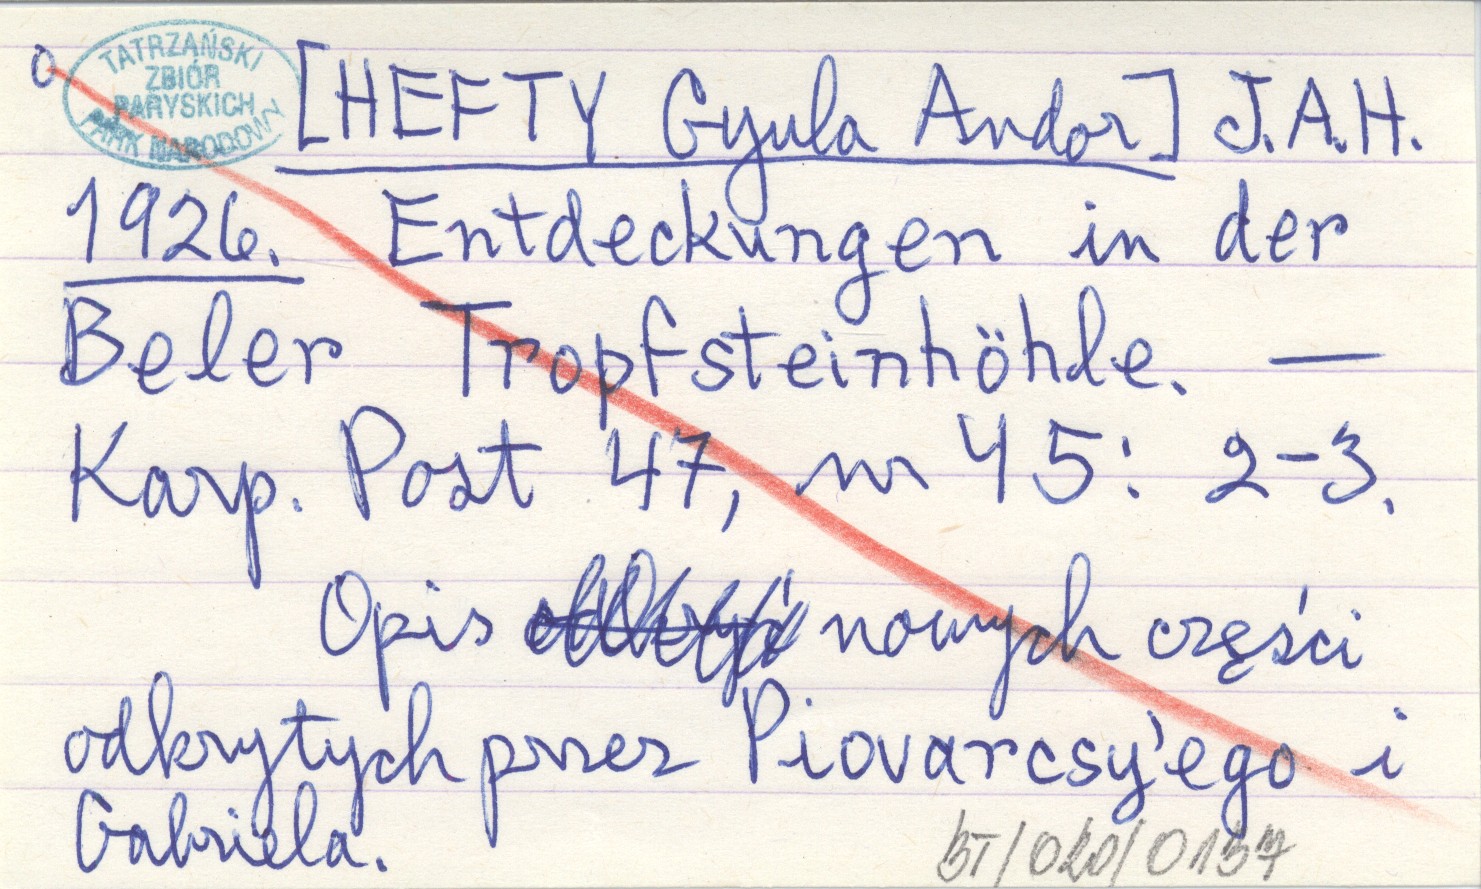 O
TATRZAŃSKI
ZBIÓR
PARYSKICH
PARK NARODOWY
[HEFTY Gyula Andor] J.A.H.
1926. Entdeckungen in der
Beler Tropfsteinhöhle. —
Karp. Post 47, nr 45: 2-3.
Opis nowych części
odkrytych przez Piovarcsy'ego i
Gabriela.
BT/020/0137